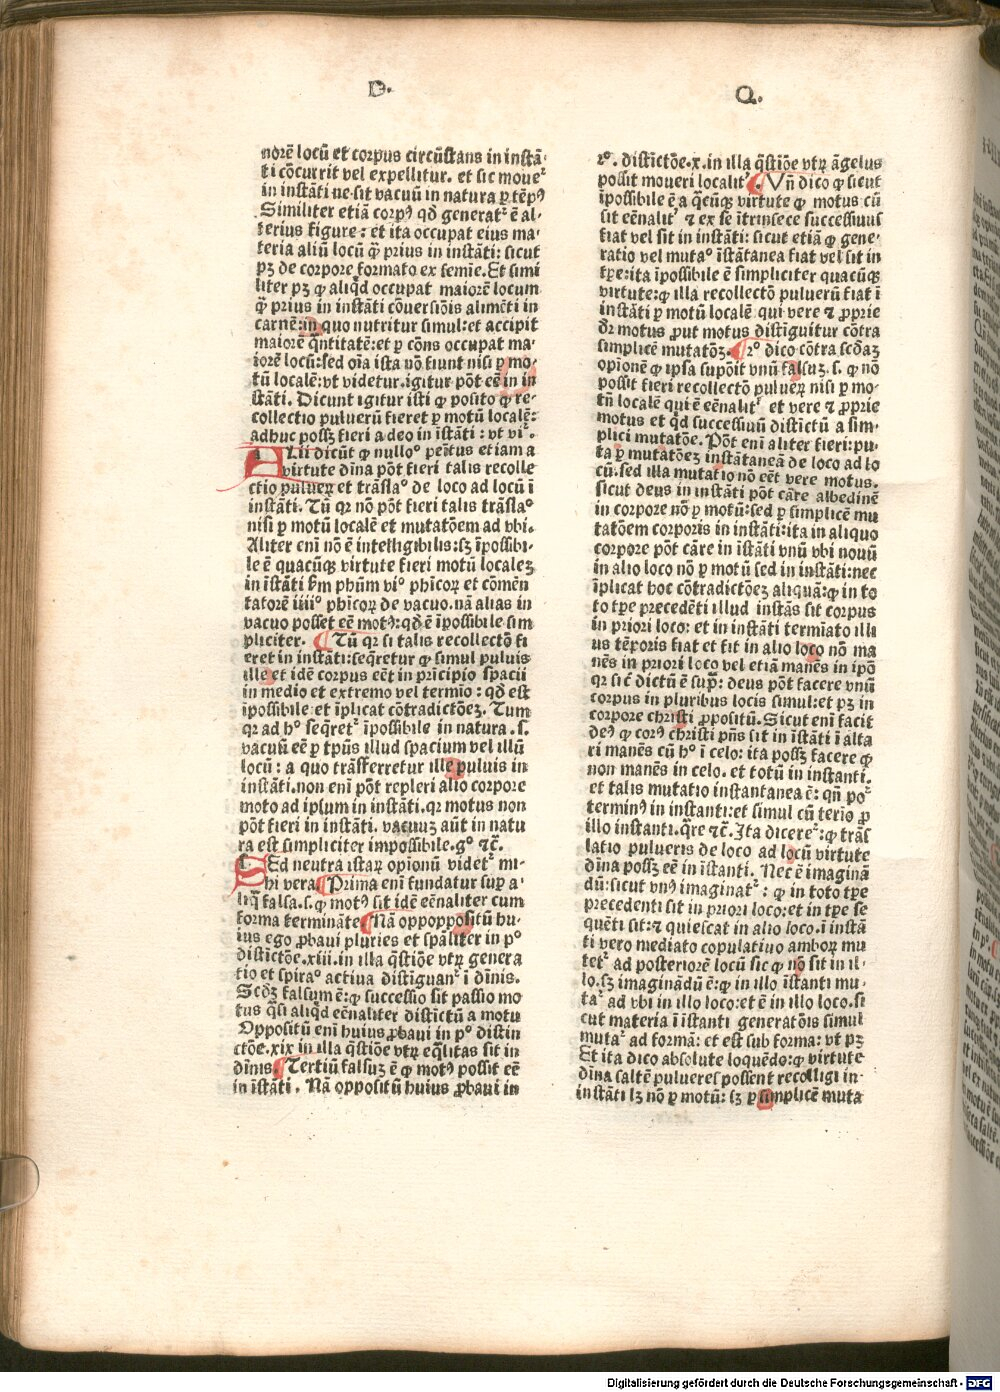 D.
Q.
norē locū et corpus circūſtans in inſtā⸗
ti cōcurrit vel expellitur. et sic mouetᷣ
in inſtāti ne sit vacuū in natura ꝑ tēpꝰ
Similiter etiā corpꝰ qd̄ generatᷣ ē al⸗
terius figure: et ita occupat eius ma⸗
teria aliū locū ꝙ̄ prius in inſtāti: sicut
pꝫ de corpore formato ex semīe. Et simi
liter pꝫ ꝙ aliq̄d occupat maiorē locum
ꝙ̄ prius in inſtāti cōuersiōis alimēti in
carnē: in quo nutritur simul: et accipit
maiorē q̄ntitatē: et ꝑ cōns occupat ma⸗
iorē locū: sed oīa iſta nō fiunt nisi ꝑ mo⸗
tū localē: vt videtur. igitur pōt eē in in
ſtāti. Dicunt igitur iſti ꝙ posito ꝙ re⸗
collectio puluerū fieret ꝑ motū localē:
adhuc possꝫ fieri adeo in īſtāti: vt viᷣ.
ALii dicūt ꝙ nulloº penͤtus etiam a
virtute dīna pōt fieri talis recolle
ctio pulueꝝ et trāſlaº de loco ad locū ī
inſtāti. Tū qꝛ nō pōt fieri talis trāſlaº
nisi ꝑ motū localē et mutatōem ad vbi.
Aliter enī nō ē intelligibilis: sꝫ īpossibi⸗
le ē quacūqꝫ virtute fieri motū localeꝫ
in īſtāti ẜm phūm viº phicoꝝ et cōmēn
tatorē iiiiº phicoꝝ de vacuo. nā alias in
vacuo posset eē motꝰ: qd̄ ē īpossibile sim
pliciter. ¶ Tū qꝛ si talis recollectō fi
eret in inſtāti: seq̄retur ꝙ simul puluis
ille et idē corpus eēt in prīcipio spacii
in medio et extremo vel termīo: qd̄ eſt
īpossibile et īplicat cōtradictōeꝫ. Tum
qꝛ ad hº seq̄retᷣ īpossibile in natura. s.
vacuū eē ꝑ tpūs illud spacium vel illū
locū: a quo trāſferretur ille puluis in
inſtāti. non enī pōt repleri alio corpore
moto ad ipsum in inſtāti. qꝛ motus non
pōt fieri in inſtāti. vacuuꝫ aūt in natu
ra eſt simpliciter impossibile. gº ⁊c̄.
SEd neutra iſtaꝝ opionū videtᷣ mi⸗
hi vera ¶ Prima enī fundatur suꝑ a⸗
liq̄ falsa. s. ꝙ motꝰ sit idē eēnaliter cum
forma termināte ¶ Nā oppoppositū hu⸗
ius ego ꝓbaui pluries et spāliter in pº
diſtictōe. xiii. in illa q̄ſtiōe vtꝝ genera
tio et spiraº actiua diſtiguanᷣ ī dīnis.
Scd̄ꝫ falsum ē: ꝙ successio sit passio mo
tus q̄si aliq̄d eēnaliter diſtictū a motu
Oppositū enī huius ꝓbaui in pº diſtin
ctōe. xix in illa q̄ſtiōe vtꝝ eq̄litas sit in
dīnis. ¶ Tertiū falsuꝫ ē ꝙ motꝰ possit eē
in īſtāti. Nā oppositū huius ꝓbaui in
2º. diſtictōe. x. in illa q̄ſtiōe vtꝝ āgelus
possit moueri localitᷣ ¶. Vn̄ dico ꝙ sicut
īpossibile ē a q̄cūqꝫ virtute ꝙ motus cū
sit eēnalitᷣ ⁊ ex se ītrinsece successiuus
fiat vel sit in inſtāti: sicut etiā ꝙ gene⸗
ratio vel mutaº īſtātanea fiat vel sit in
tꝑe: ita īpossibile ē simpliciter quacūqꝫ
virtute: ꝙ illa recollectō puluerū fiat ī
inſtāti ꝑ motū localē qui vere ⁊ ꝓprie
dr̄ motus ꝓut motus diſtiguitur cōtra
simplicē mutatōꝫ. ¶ 2º dico cōtra scd̄aꝫ
opionē ꝙ ipsa supōit vnū falsuꝫ. s. ꝙ nō
possit fieri recollectō pulueꝝ nisi ꝑ mo⸗
tū localē qui ē eēnalitᷣ et vere ⁊ ꝓprie
motus et qd̄ successiuū diſtictū a sim⸗
plici mutatōe. Pōt enī aliter fieri: pu⸗
ta ꝑ mutatōeꝫ inſtātaneā de loco ad lo
cū. sed illa mutatio nō eēt vere motus.
sicut deus in inſtāti pōt cāre albedinē
in corpore nō ꝑ motū: sed ꝑ simplicē mu
tatōem corporis in inſtāti: ita in aliquo
corpore pōt cāre in īſtāti vnū vbi nouū
in alio loco nō ꝑ motū sed in inſtāti: nec
īplicat hoc cōtradictōeꝫ aliquā: ꝙ in to
to tꝑe precedēti illud inſtās sit corpus
in priori loco: et in inſtāti termīato illi
us tēporis fiat et sit in alio loco nō ma
nēs in priori loco vel etiā manēs in ipō
qꝛ sic dictū ē supᷣ: deus pōt facere vnū
corpus in pluribus locis simul: et pꝫ in
corpore chriſti ꝓpositū. Sicut enī facit
deꝰ ꝙ corꝰ chriſti pn̄s sit in īſtāti ī alta
ri manēs cū hº ī celo: ita possꝫ facere ꝙ
non manēs in celo. et totū in inſtanti.
et talis mutatio inſtantanea ē: qn̄ poᷣ
terminꝰ in inſtanti: et simul cū terīo ꝓ
illo inſtanti. q̄re ⁊c̄. Ita dicereᷣ: ꝙ trāſ
latio pulueris de loco ad locū virtute
dīna possꝫ eē in īſtanti. Nec ē imaginā
dū: sicut vnꝰ imaginatᷣ: ꝙ in toto tꝑe
precedenti sit in priori loco: et in tꝑe se
quēti sit: ⁊ quiescat in alio loco. ī inſtā
ti vero mediato copulatiuo amboꝝ mu
tetᷣ ad posteriorē locū sic ꝙ nō sit in il⸗
lo. sꝫ imaginādū ē: ꝙ in illo īſtanti mu⸗
taᷣ ad vbi in illo loco: et ē in illo loco. si
cut materia ī iſtanti generatōis simul
mutaᷣ ad formā: et eſt sub forma: vt pꝫ
Et ita dico absolute loquēdo: ꝙ virtute
dīna saltē pulueres possent recolligi in⸗
inſtāti lꝫ nō ꝑ motū: sꝫ ꝑ simplicē muta
Digitalisierung gefördert durch die Deutsche Forschungsgemeinschaft - DFG